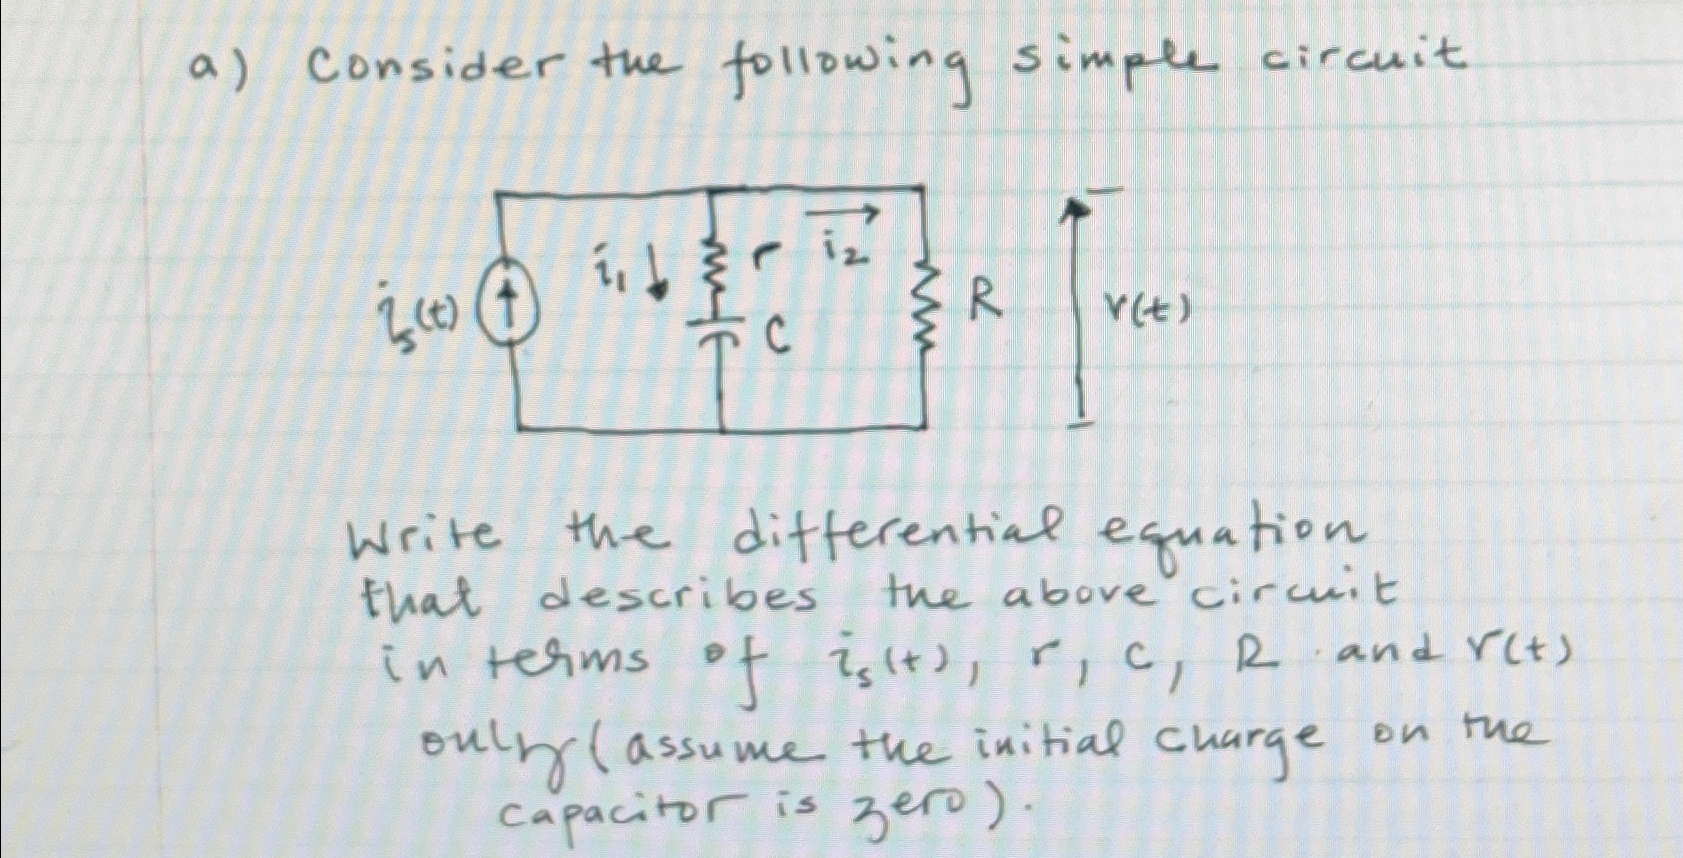 a) Consider the following simple circuit
i₁ r i₂
iₛ(t) C R v(t)
Write the differential equation
that describes the above circuit
in terms of iₛ(t), r, c, R and v(t)
only (assume the initial charge on the
capacitor is zero).